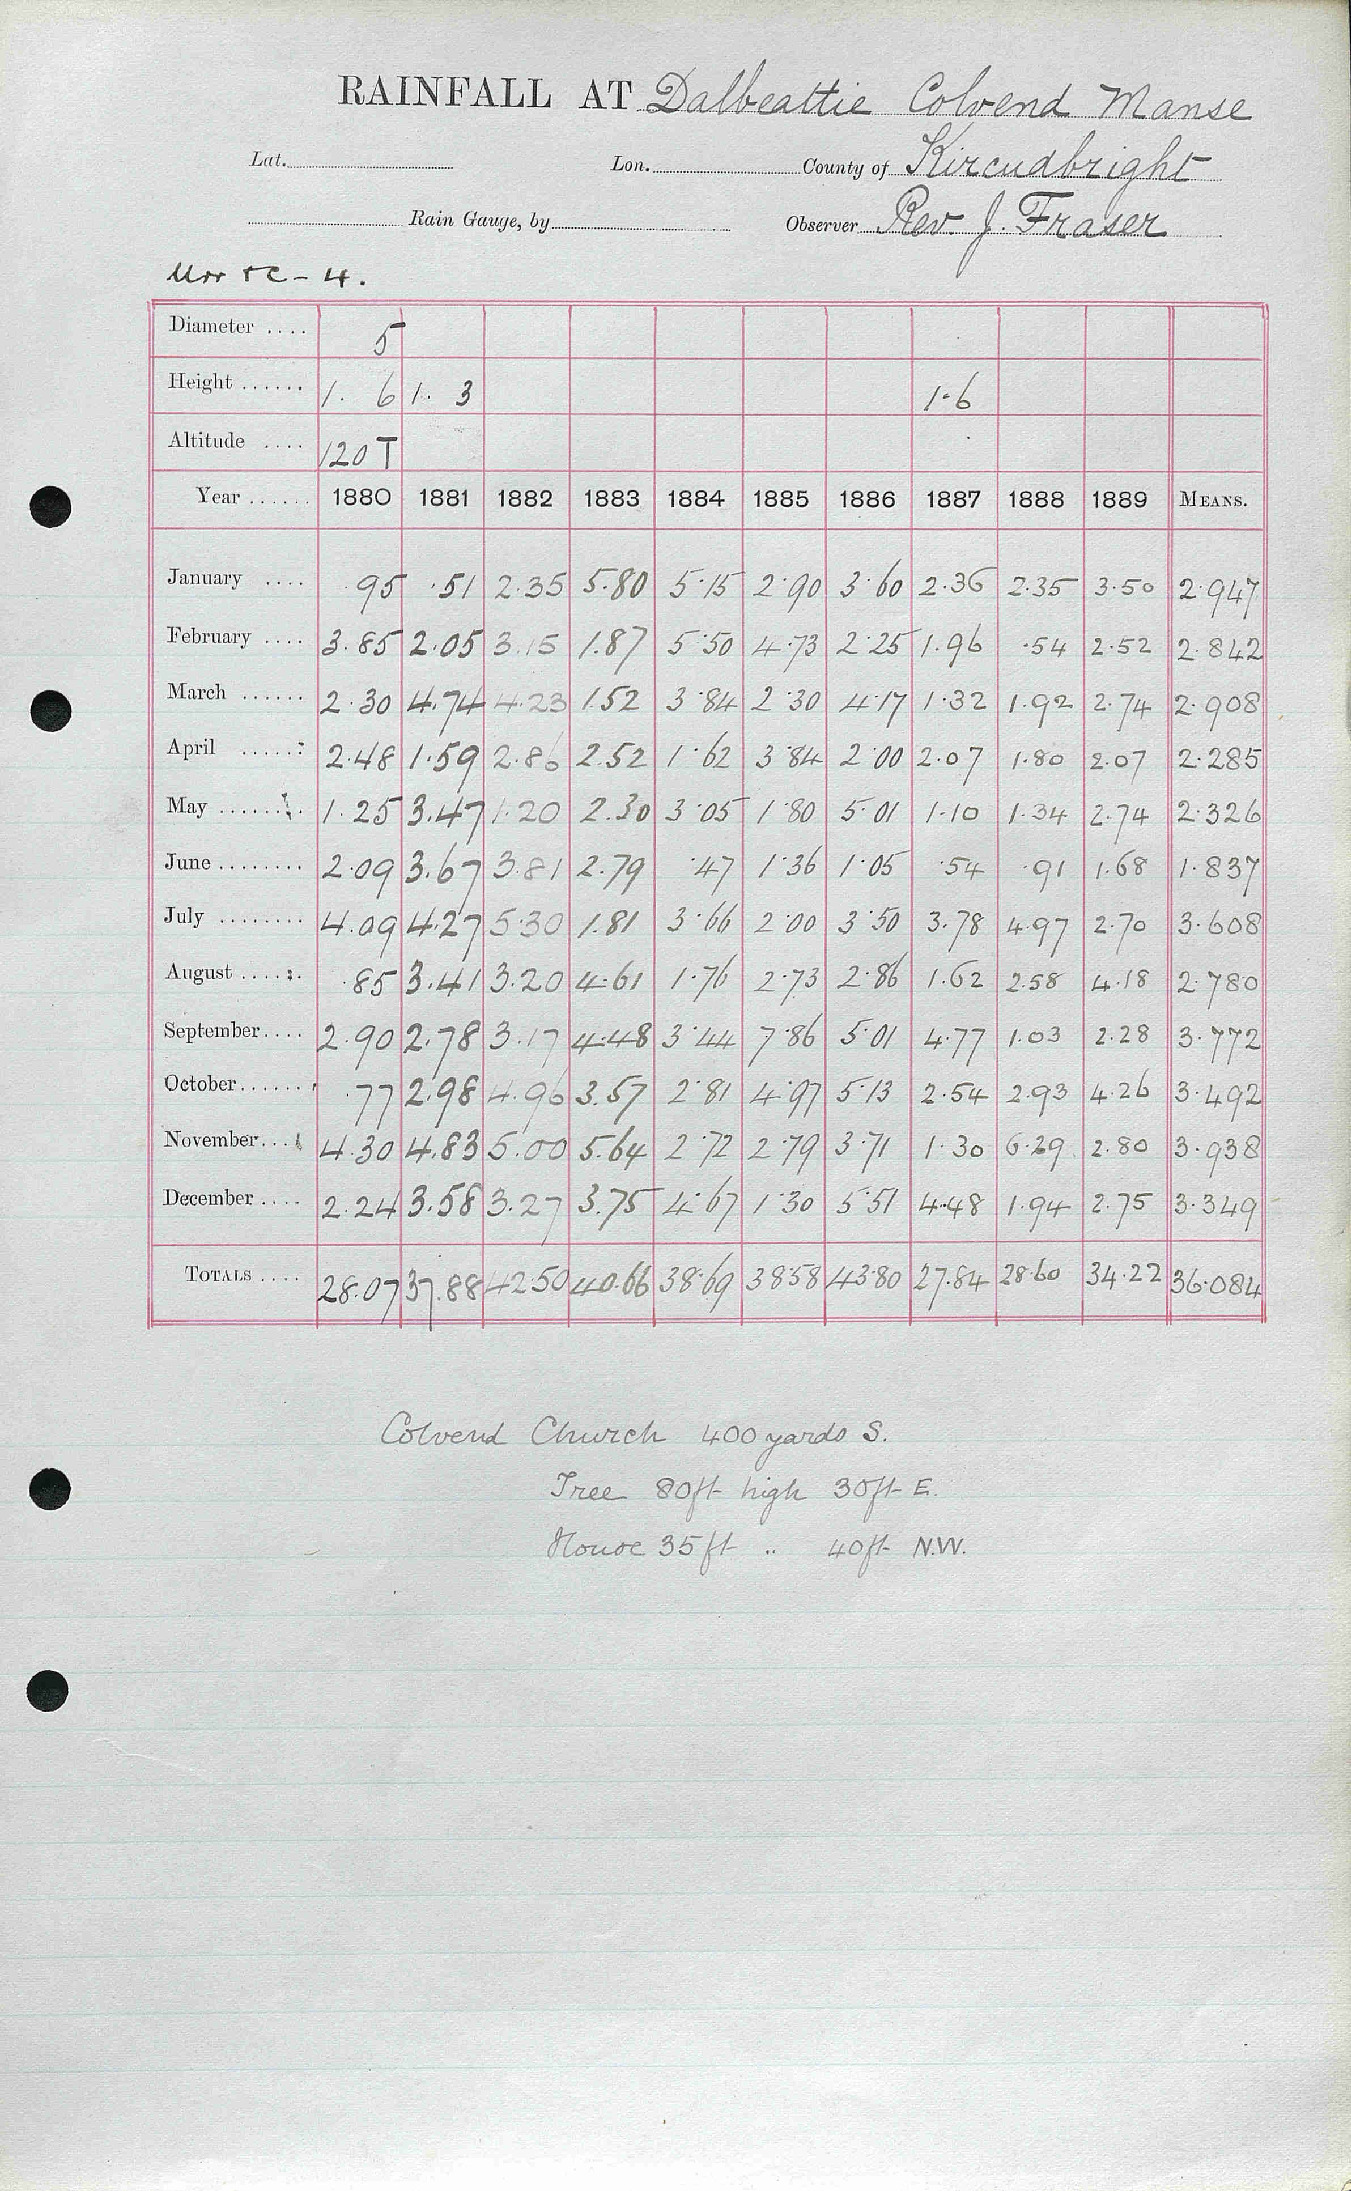 RAINFALL AT Dalbeattie Colvend Manse
Lat. Lon. County of Kircudbright
Rain Gauge, by Observer Rev. J. Fraser
4.
Diameter .... 5
Height ...... 1. 6 1. 3 1.6
Altitude .... 120 T
Year ...... 1880 1881 1882 1883 1884 1885 1886 1887 1888 1889 MEANS.
January .... .95 .51 2.35 5.80 5.15 2.90 3.60 2.36 2.35 3.50 2.947
February .... 3.85 2.05 3.15 1.87 5.50 4.73 2.25 1.96 .54 2.52 2.842
March ...... 2.30 4.74 4.23 1.52 3.84 2.30 4.17 1.32 1.92 2.74 2.908
April ...... 2.48 1.59 2.86 2.52 1.62 3.84 2.00 2.07 1.80 2.07 2.285
May ........ 1.25 3.47 1.20 2.30 3.05 1.80 5.01 1.10 1.34 2.74 2.326
June ........ 2.09 3.67 3.81 2.79 .47 1.36 1.05 .54 .91 1.68 1.837
July ........ 4.09 4.27 5.30 1.81 3.66 2.00 3.50 3.78 4.97 2.70 3.608
August ...... .85 3.41 3.20 4.61 1.76 2.73 2.86 1.62 2.58 4.18 2.780
September .... 2.90 2.78 3.17 4.48 3.44 7.86 5.01 4.77 1.03 2.28 3.772
October ....... .77 2.98 4.96 3.57 2.81 4.97 5.13 2.54 2.93 4.26 3.492
November .... 4.30 4.83 5.00 5.64 2.72 2.79 3.71 1.30 6.29 2.80 3.938
December .... 2.24 3.58 3.27 3.75 4.67 1.30 5.51 4.48 1.94 2.75 3.349
TOTALS .... 28.07 37.88 42.50 40.66 38.69 38.58 43.80 27.84 28.60 34.22 36.084
Colvend Church 400 yards S.
Tree 80ft high 30ft E.
House 35ft " 40ft N.W.